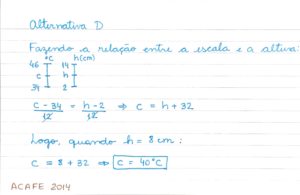 Alternativa D
Fazendo a relação entre a escala e a altura:
°C h(cm)
46 14
C h
34 2
C - 34 / 12 = h - 2 / 12 ⇒ C = h + 32
Logo, quando h = 8 cm:
C = 8 + 32 ⇒ C = 40°C
ACAFE 2014